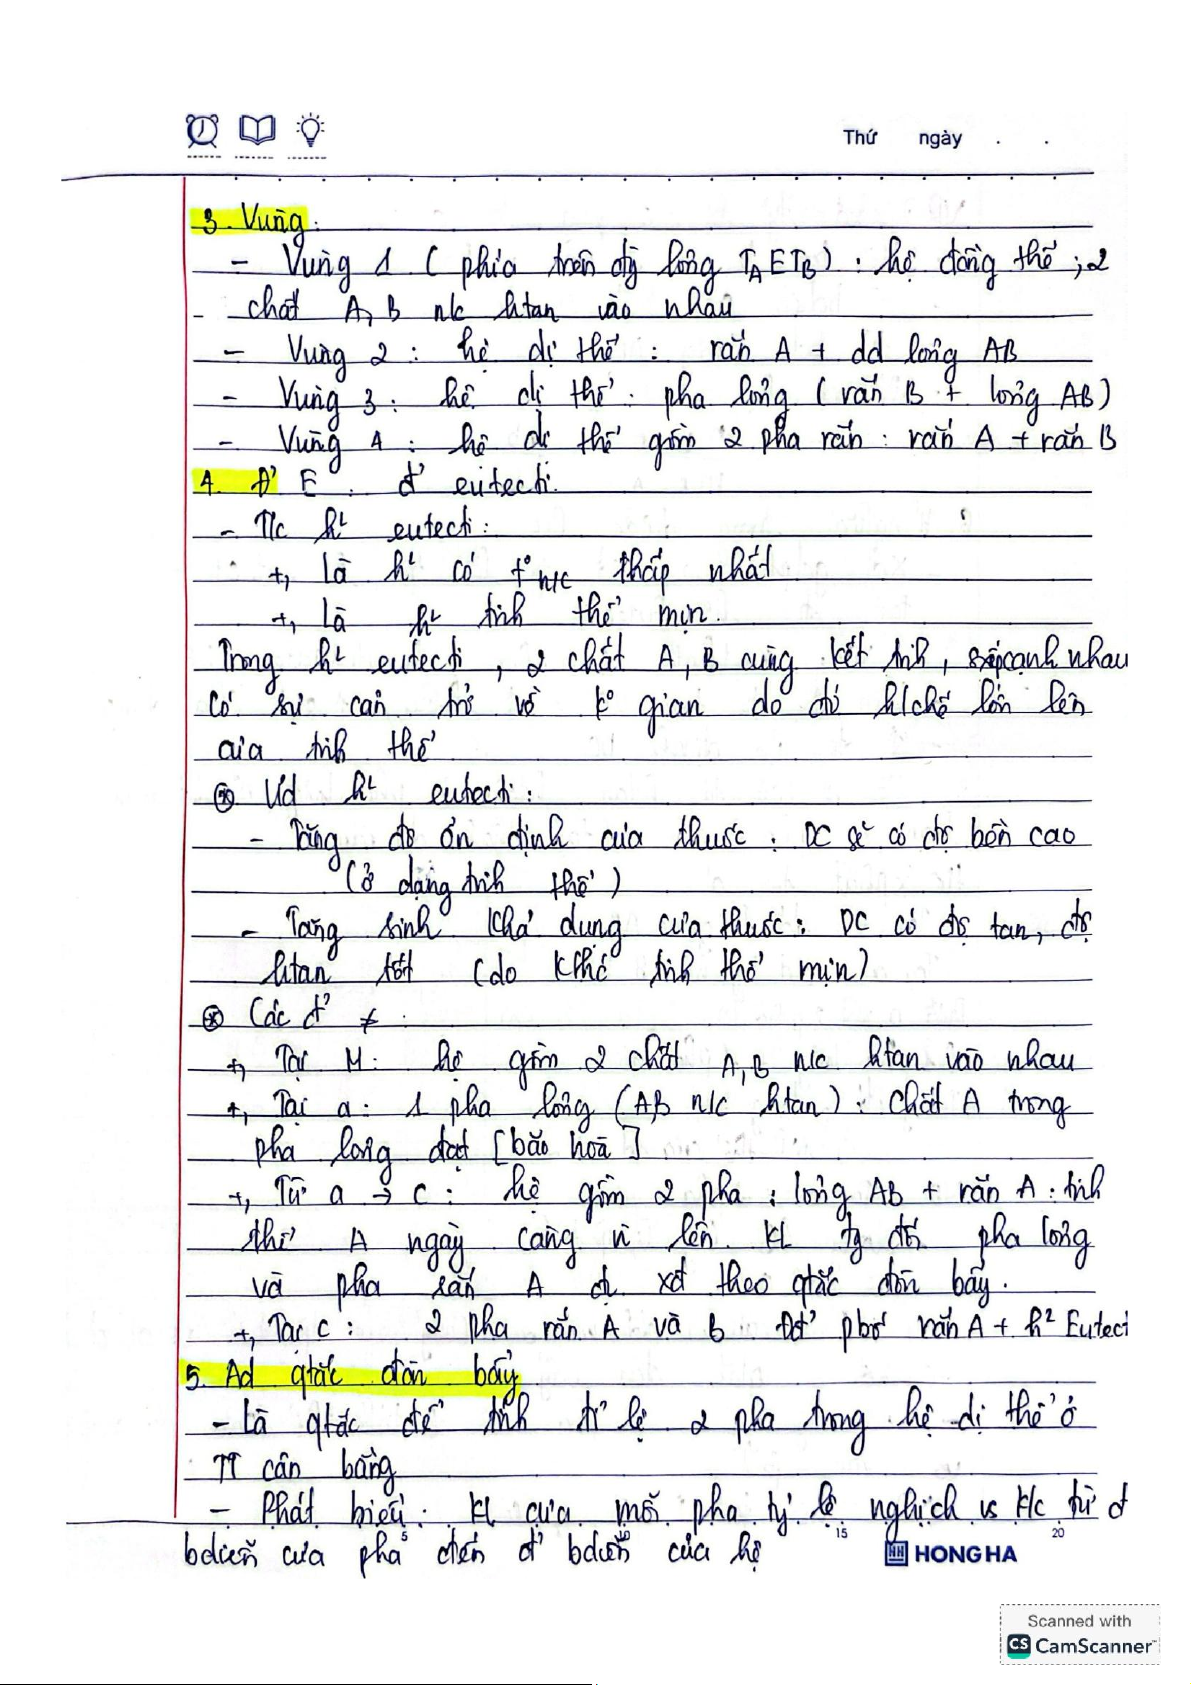 Thứ ngày . .
3. Vùng:
- Vùng 1 ( phía trên đg lỏng TAETB) : hệ đồng thể ; 2
- chất A, B n/c htan vào nhau
- Vùng 2 : hệ dị thể : rắn A + dd lỏng AB
- Vùng 3 : hệ dị thể : pha lỏng ( rắn B + lỏng AB)
- Vùng 4 : hệ dị thể gồm 2 pha rắn : rắn A + rắn B
4. Đ' E : đ' eutecti.
- T/c h² eutecti :
+, Là h² có t°n/c thấp nhất
+, Là h² tinh thể mịn.
Trong h² eutecti , 2 chất A, B cùng kết tinh, sắp cạnh nhau
có sự cản trở về k° gian do đó h/chế lớn lên
của tinh thể
⊛ Ưd h² eutecti :
- Tăng độ ổn định của thuốc : DC sẽ có độ bền cao
(ở dạng tinh thể )
- Tăng sinh khả dụng của thuốc : DC có độ tan, độ
htan tốt (do kthc tinh thể mịn)
⊛ Các đ' ≠ :
+, Tại M : hệ gồm 2 chất A, B n/c htan vào nhau
+, Tại a : 1 pha lỏng (A,B n/c htan) : Chất A trong
pha lỏng đạt [bão hoà]
+, Từ a → c : hệ gồm 2 pha : lỏng AB + rắn A : tinh
thể A ngày càng n lên. KL tg đối pha lỏng
và pha rắn A đ xđ theo qtắc đòn bẩy.
+, Tại c : 2 pha rắn A và B. Đđ' pbố rắn A + h² Eutecti
5. Ad qtắc đòn bẩy
- Là qtắc để tính tỉ lệ 2 pha trong hệ dị thể ở
TT cân bằng
- Phát biểu : KL của mỗi pha tỷ lệ nghịch vs k/c từ đ'
bdiễn của pha đến đ' bdiễn của hệ
5 15 20
HONG HA
Scanned with
CS CamScanner